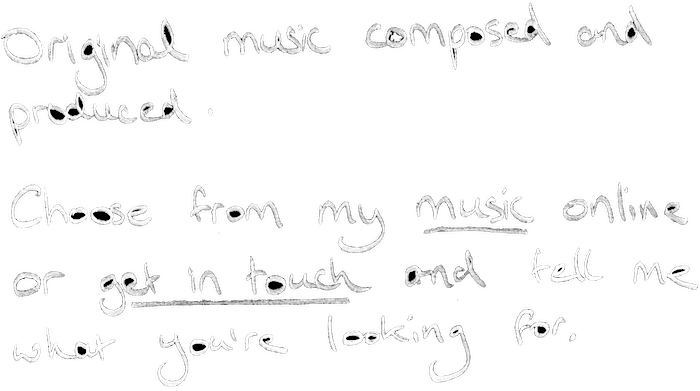 Original music composed and
produced.
Choose from my music online
or get in touch and tell me
what you're looking for.